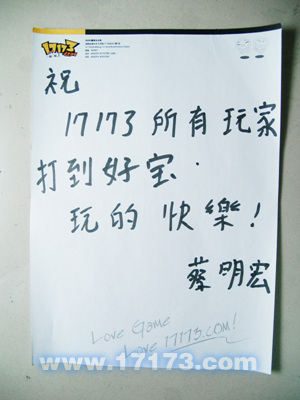 17173
.com
祝
17173 所有玩家
打到好宝.
玩的快樂!
蔡明宏
Love Game
Love 17173.COM!
www.17173.com